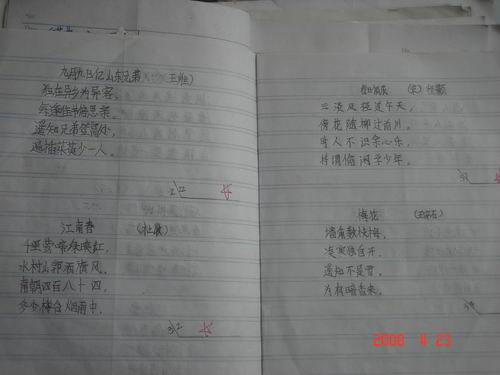 九月九日忆山东兄弟 (王维)
独在异乡为异客,
每逢佳节倍思亲。
遥知兄弟登高处,
遍插茱萸少一人。
江南春 (杜牧)
千里莺啼绿映红,
水村山郭酒旗风。
南朝四百八十四,
多少楼台烟雨中。
(宋) 程颢
云淡风轻近午天,
傍花随柳过前川。
时人不识余心乐,
将谓偷闲学少年。
梅花 (王安石)
墙角数枝梅,
凌寒独自开。
遥知不是雪,
为有暗香来。
2008 4 23